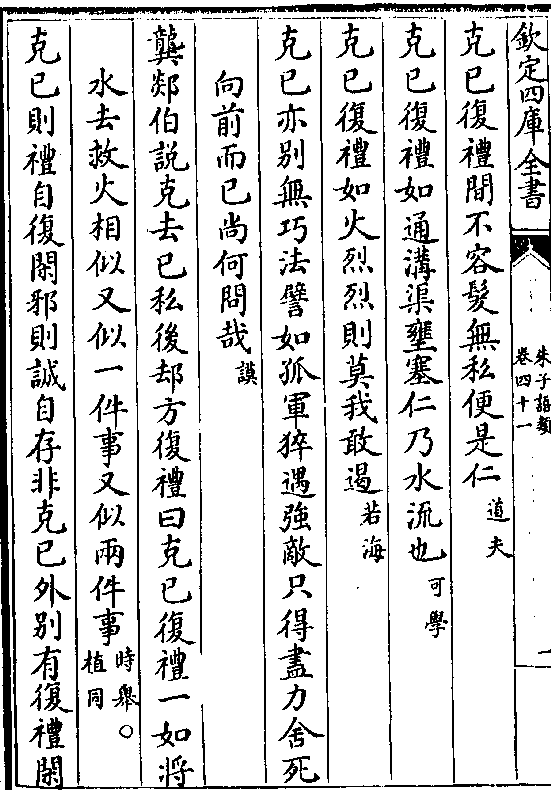 欽定四庫全書
朱子語類
卷四十一
克已復禮間不容髮無私便是仁道夫
克已復禮如通溝渠壅塞仁乃水流也可學
克已復禮如火烈烈則莫我敢遏若海
克已亦别無巧法譬如孤軍猝遇強敵只得盡力舍死
向前而已尚何問哉謨
龔郯伯説克去已私後却方復禮曰克已復禮一如將
水去救火相似又似一件事又似兩件事時舉○植同
克已則禮自復閑邪則誠自存非克已外别有復禮閑